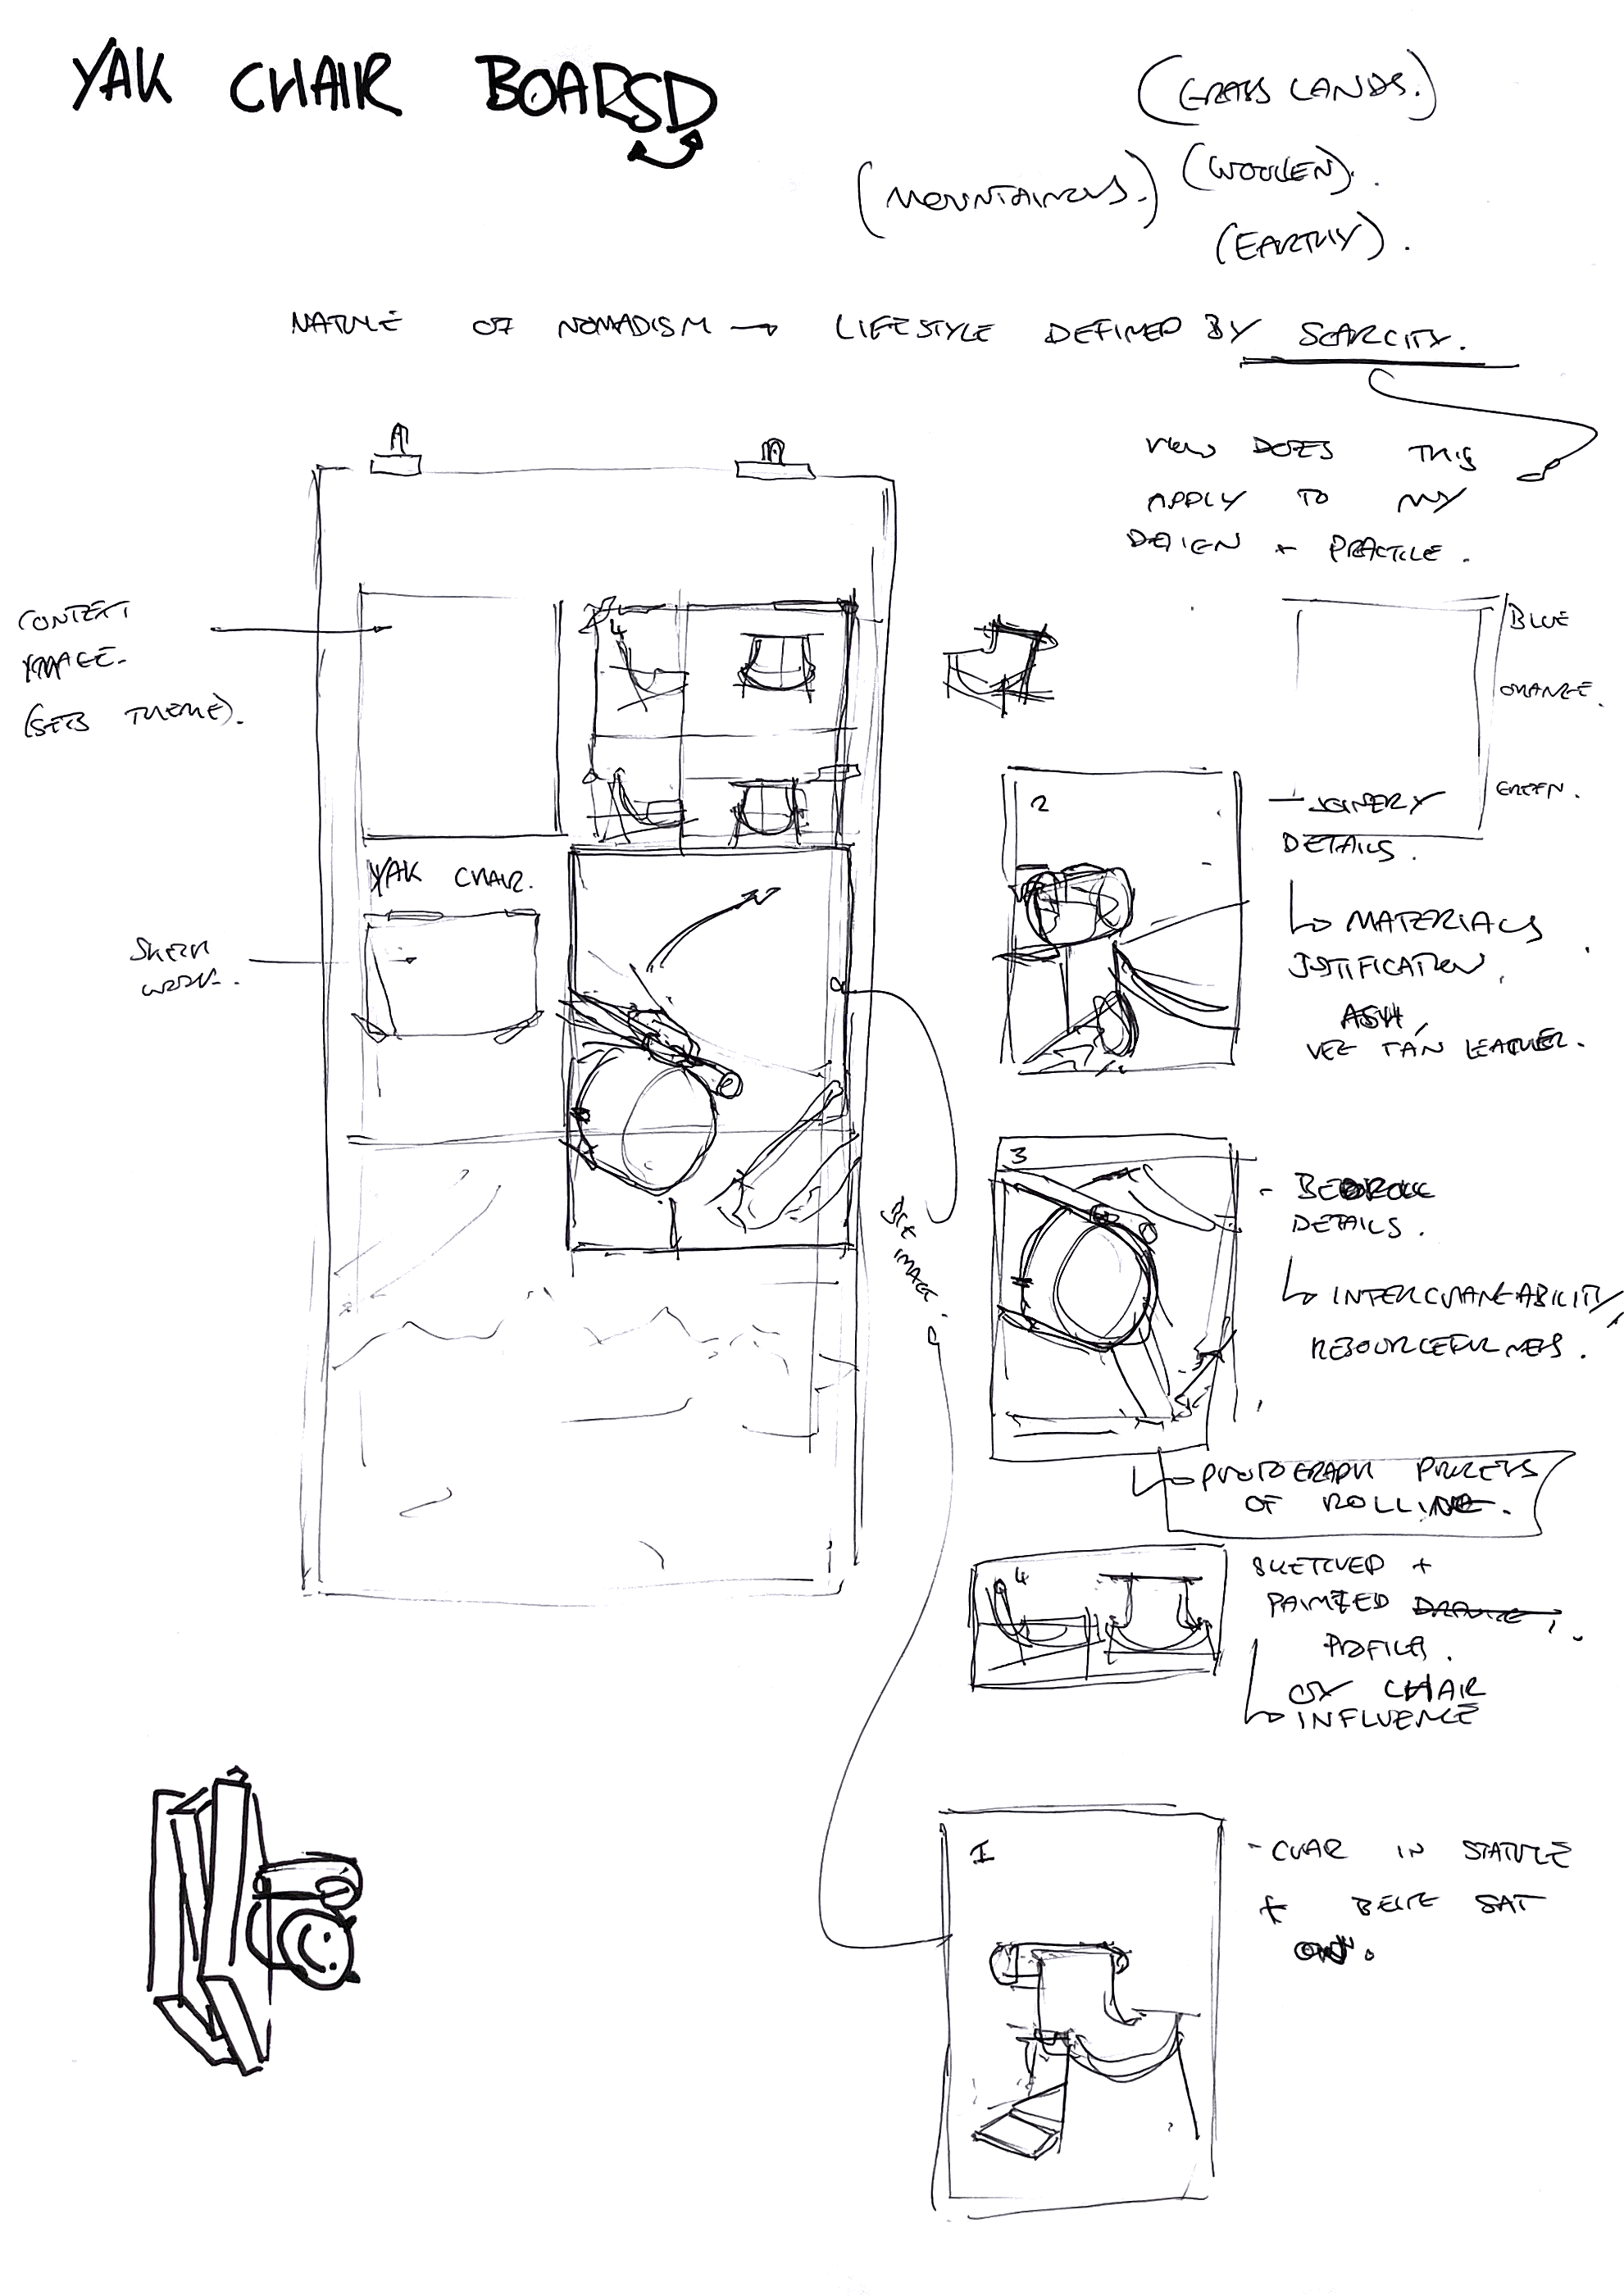 YAK CHAIR BOARSD
(GRASS LANDS.)
(MOUNTAINOUS.)
(WOOLLEN).
(EARTHY).
NATURE OF NOMADISM → LIFESTYLE DEFINED BY SCARCITY.
HOW DOES THIS
APPLY TO MY
DESIGN + PRACTICE.
CONTEXT
IMAGE.
(SETS THEME).
4
BLUE
ORANGE.
GREEN.
2
- JOINERY
DETAILS.
YAK CHAIR.
↳ MATERIALS
JUSTIFICATION,
ASH,
VEG TAN LEATHER.
SKETCH
WORK.
3
- BEDROLL
DETAILS.
BIG
IMAGE.
↳ INTERCHANGEABILITY,
RESOURCEFULNESS.
↳ PHOTOGRAPH PROCESS
OF ROLLING.
4
SKETCHED +
PAINTED
PROFILES.
↳ OX CHAIR
INFLUENCE
1
- CHAIR IN STATURE
+ BEING SAT
ON.